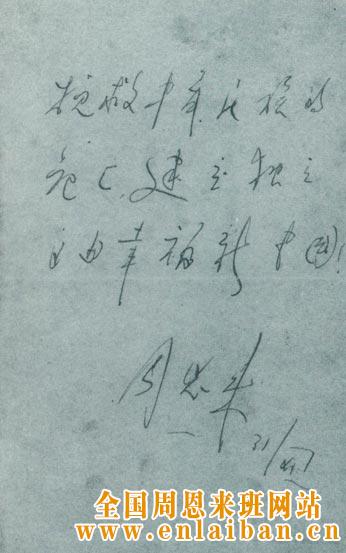 挽救中华民族的
危亡,建立独立
自由幸福新中国!
周恩来
全国周恩来班网站
www.enlaiban.cn